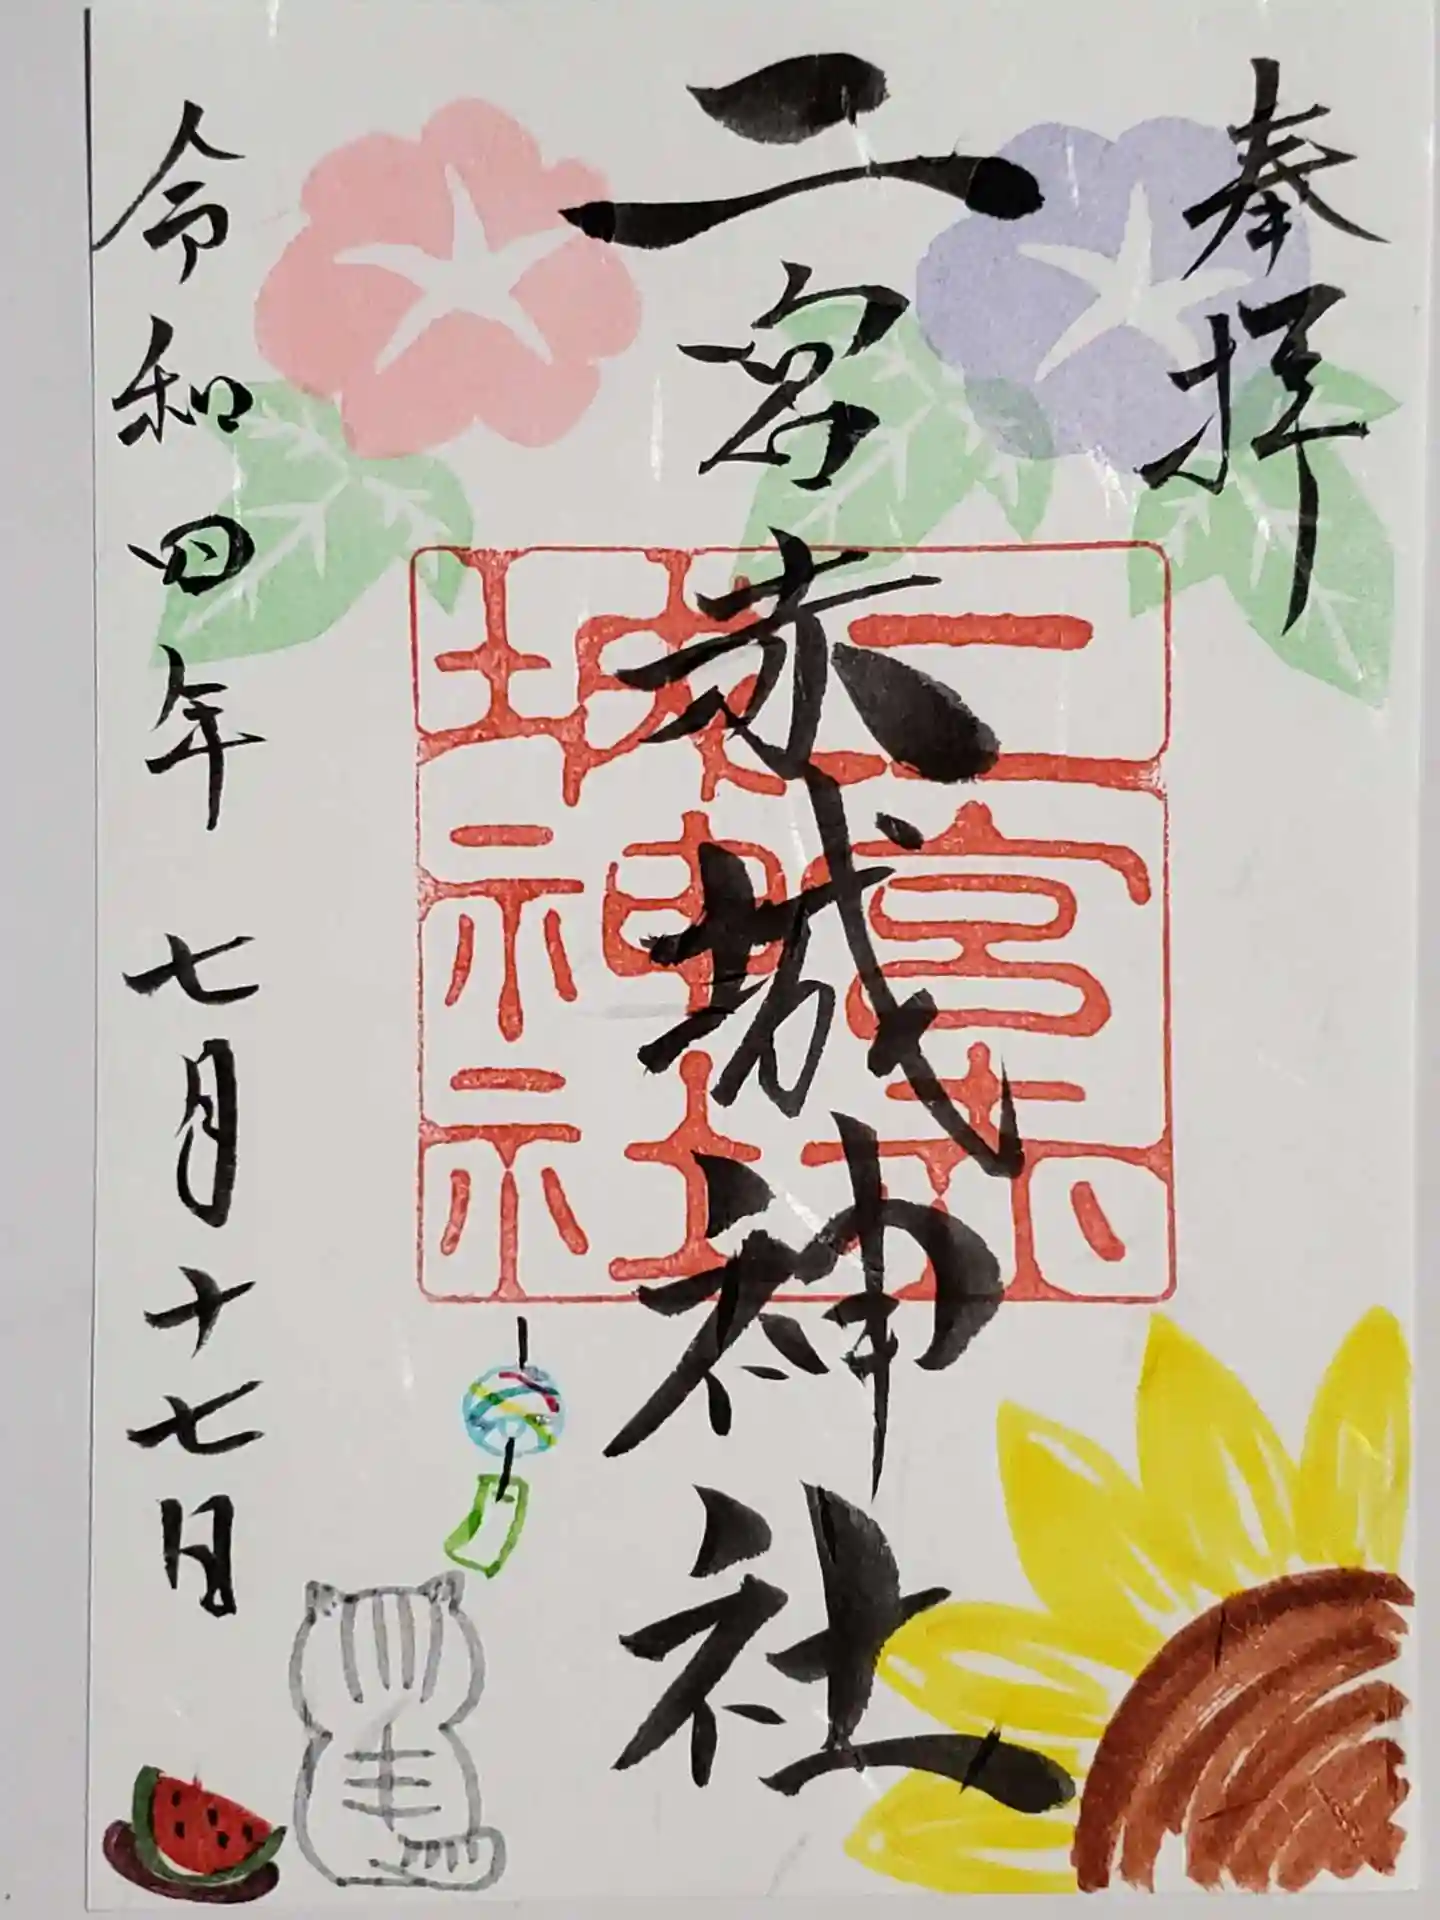 奉拝
二宮赤城神社
二宮赤城神社
令和四年 七月十七日